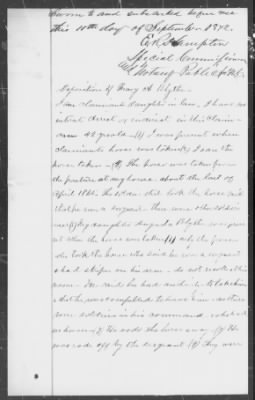 Sworn to and subscribed before me
this 10th day of September 1872.
E. R. Hampton
Special Commissioner
& Notary Public
Deposition of Mary A. Blythe.
I am claimants daughter in law, I have no
interest direct or indirect in this claim—
am 42 years old—(1) I was present when
claimants horse was taken & saw the
horse taken—(2) The horse was taken from
the pasture at my house about the last of
April 1865. The man who took the horse said
that he was a sergeant. there were other soldiers
my daughter Blythe was present
when the horse was taken the person
who took the horse who said he was a sergeant
& had stripes on his arm— do not recollect his
name— He said he had orders to take him
that he was compelled to have him—
some soldiers in his command
He rode the horse away. (7) He
was rode off by the sergeant (8) They were